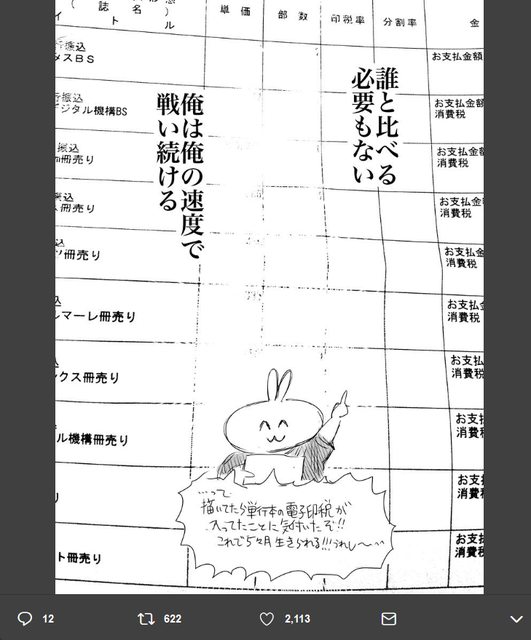 （ 誌 名 ）
イ ト ル
単 価
部 数
印税率
分割率
金
振込
メスＢＳ
お支払金額
振込
デジタル機構BS
お支払金額
消費税
振込
冊売り
お支払金額
消費税
冊売り
お支払金
消費税
込
冊売り
お支払金
消費税
込
ルマーレ冊売り
お支払金
消費税
クス冊売り
お支払
消費税
ル機構冊売り
お支払
消費税
り
お支払
消費税
ト冊売り
お支払
消費税
誰と比べる
必要もない
俺は俺の速度で
戦い続ける
…って
描いてたら単行本の電子印税が
入ってたことに気付いたぞ!!
これで5ヶ月生きられる!!!うれし〜…
12
622
2,113